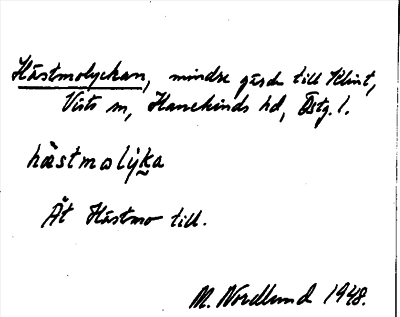 Hästmolyckan, mindre gård till Klint,
Vists sn, Hanekinds hd, Östg. l.
hästmωlỳk̬a
Åt Hästmo till.
M. Nordlund 1948.